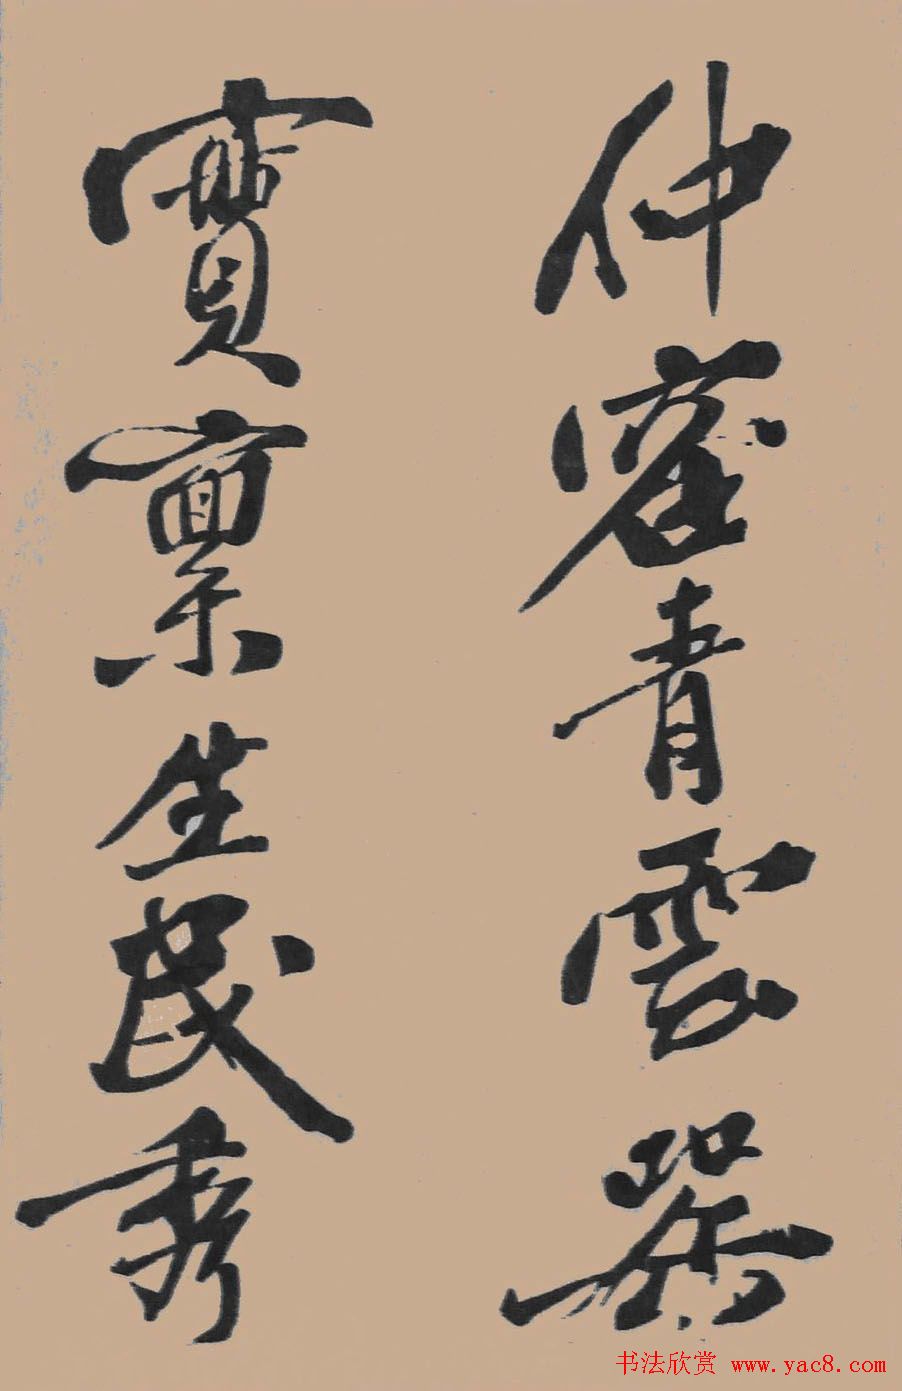 仲容青雲器
實禀生民秀
书法欣赏 www.yac8.com